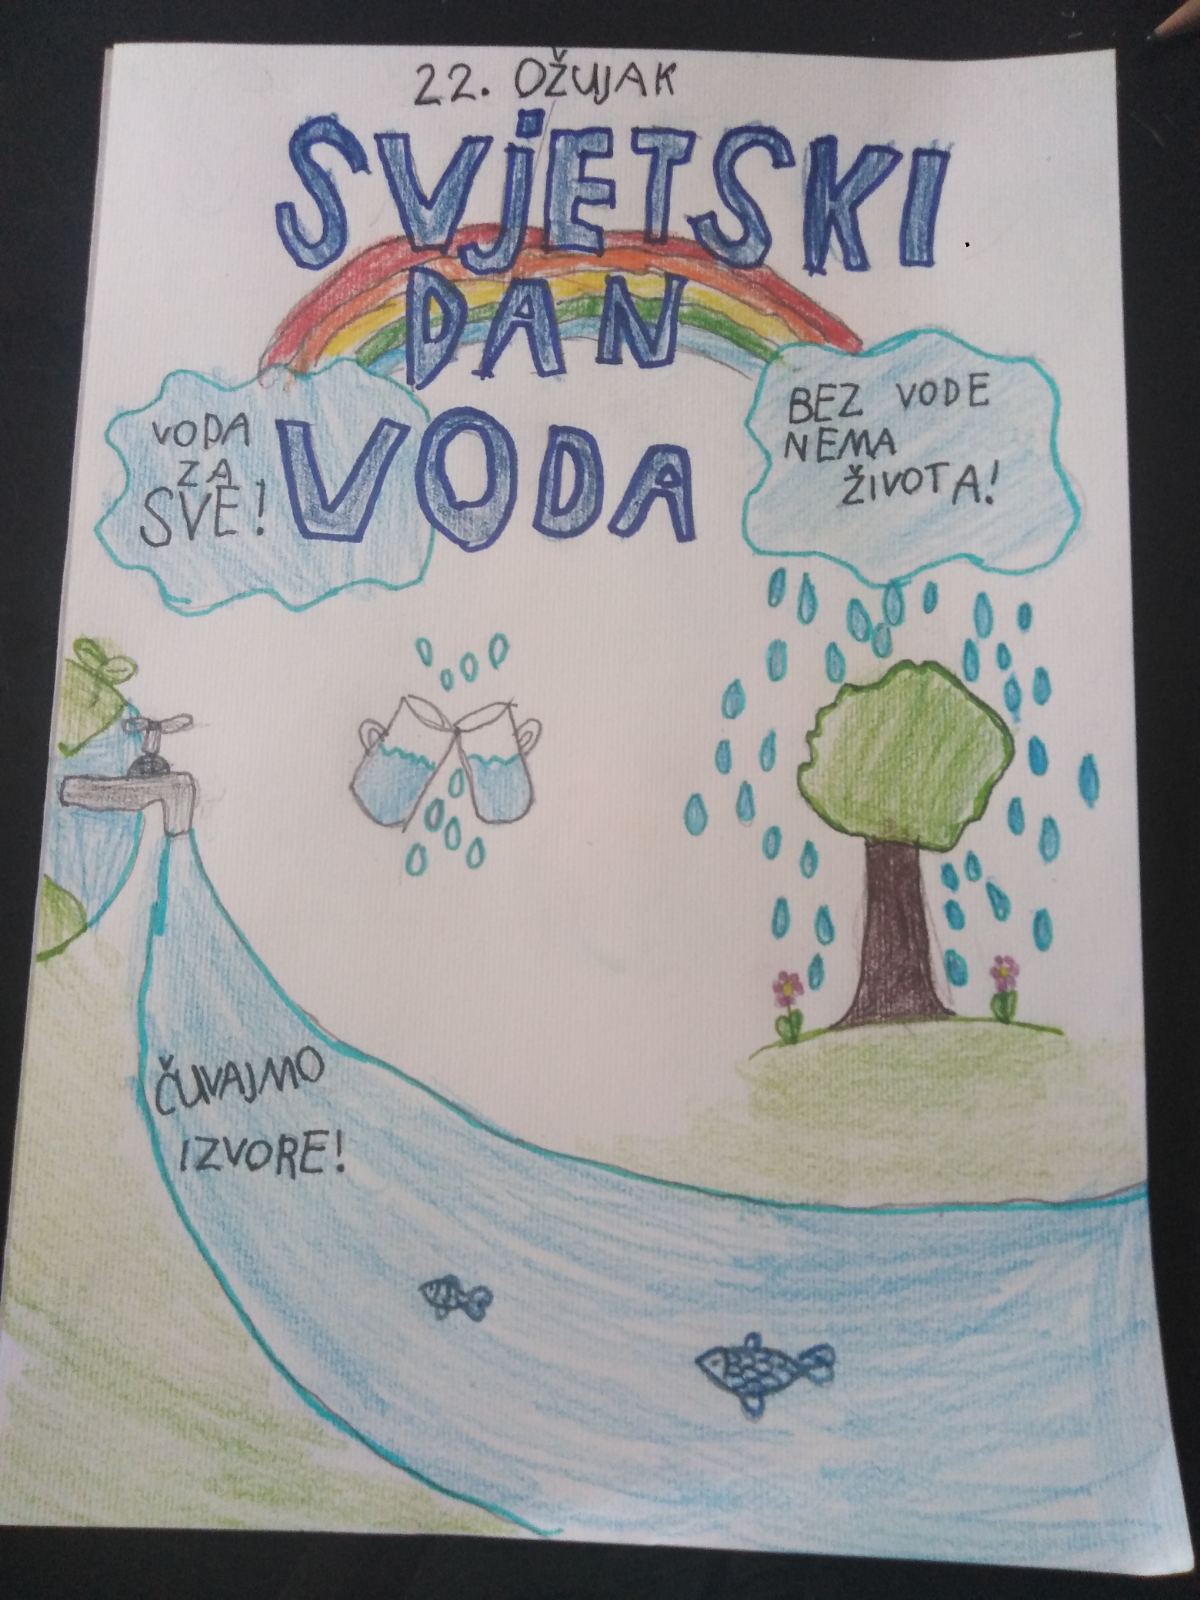 22. OŽUJAK
SVJETSKI
DAN
VODA
VODA
ZA
SVE!
BEZ VODE
NEMA
ŽIVOTA!
ČUVAJMO
IZVORE!